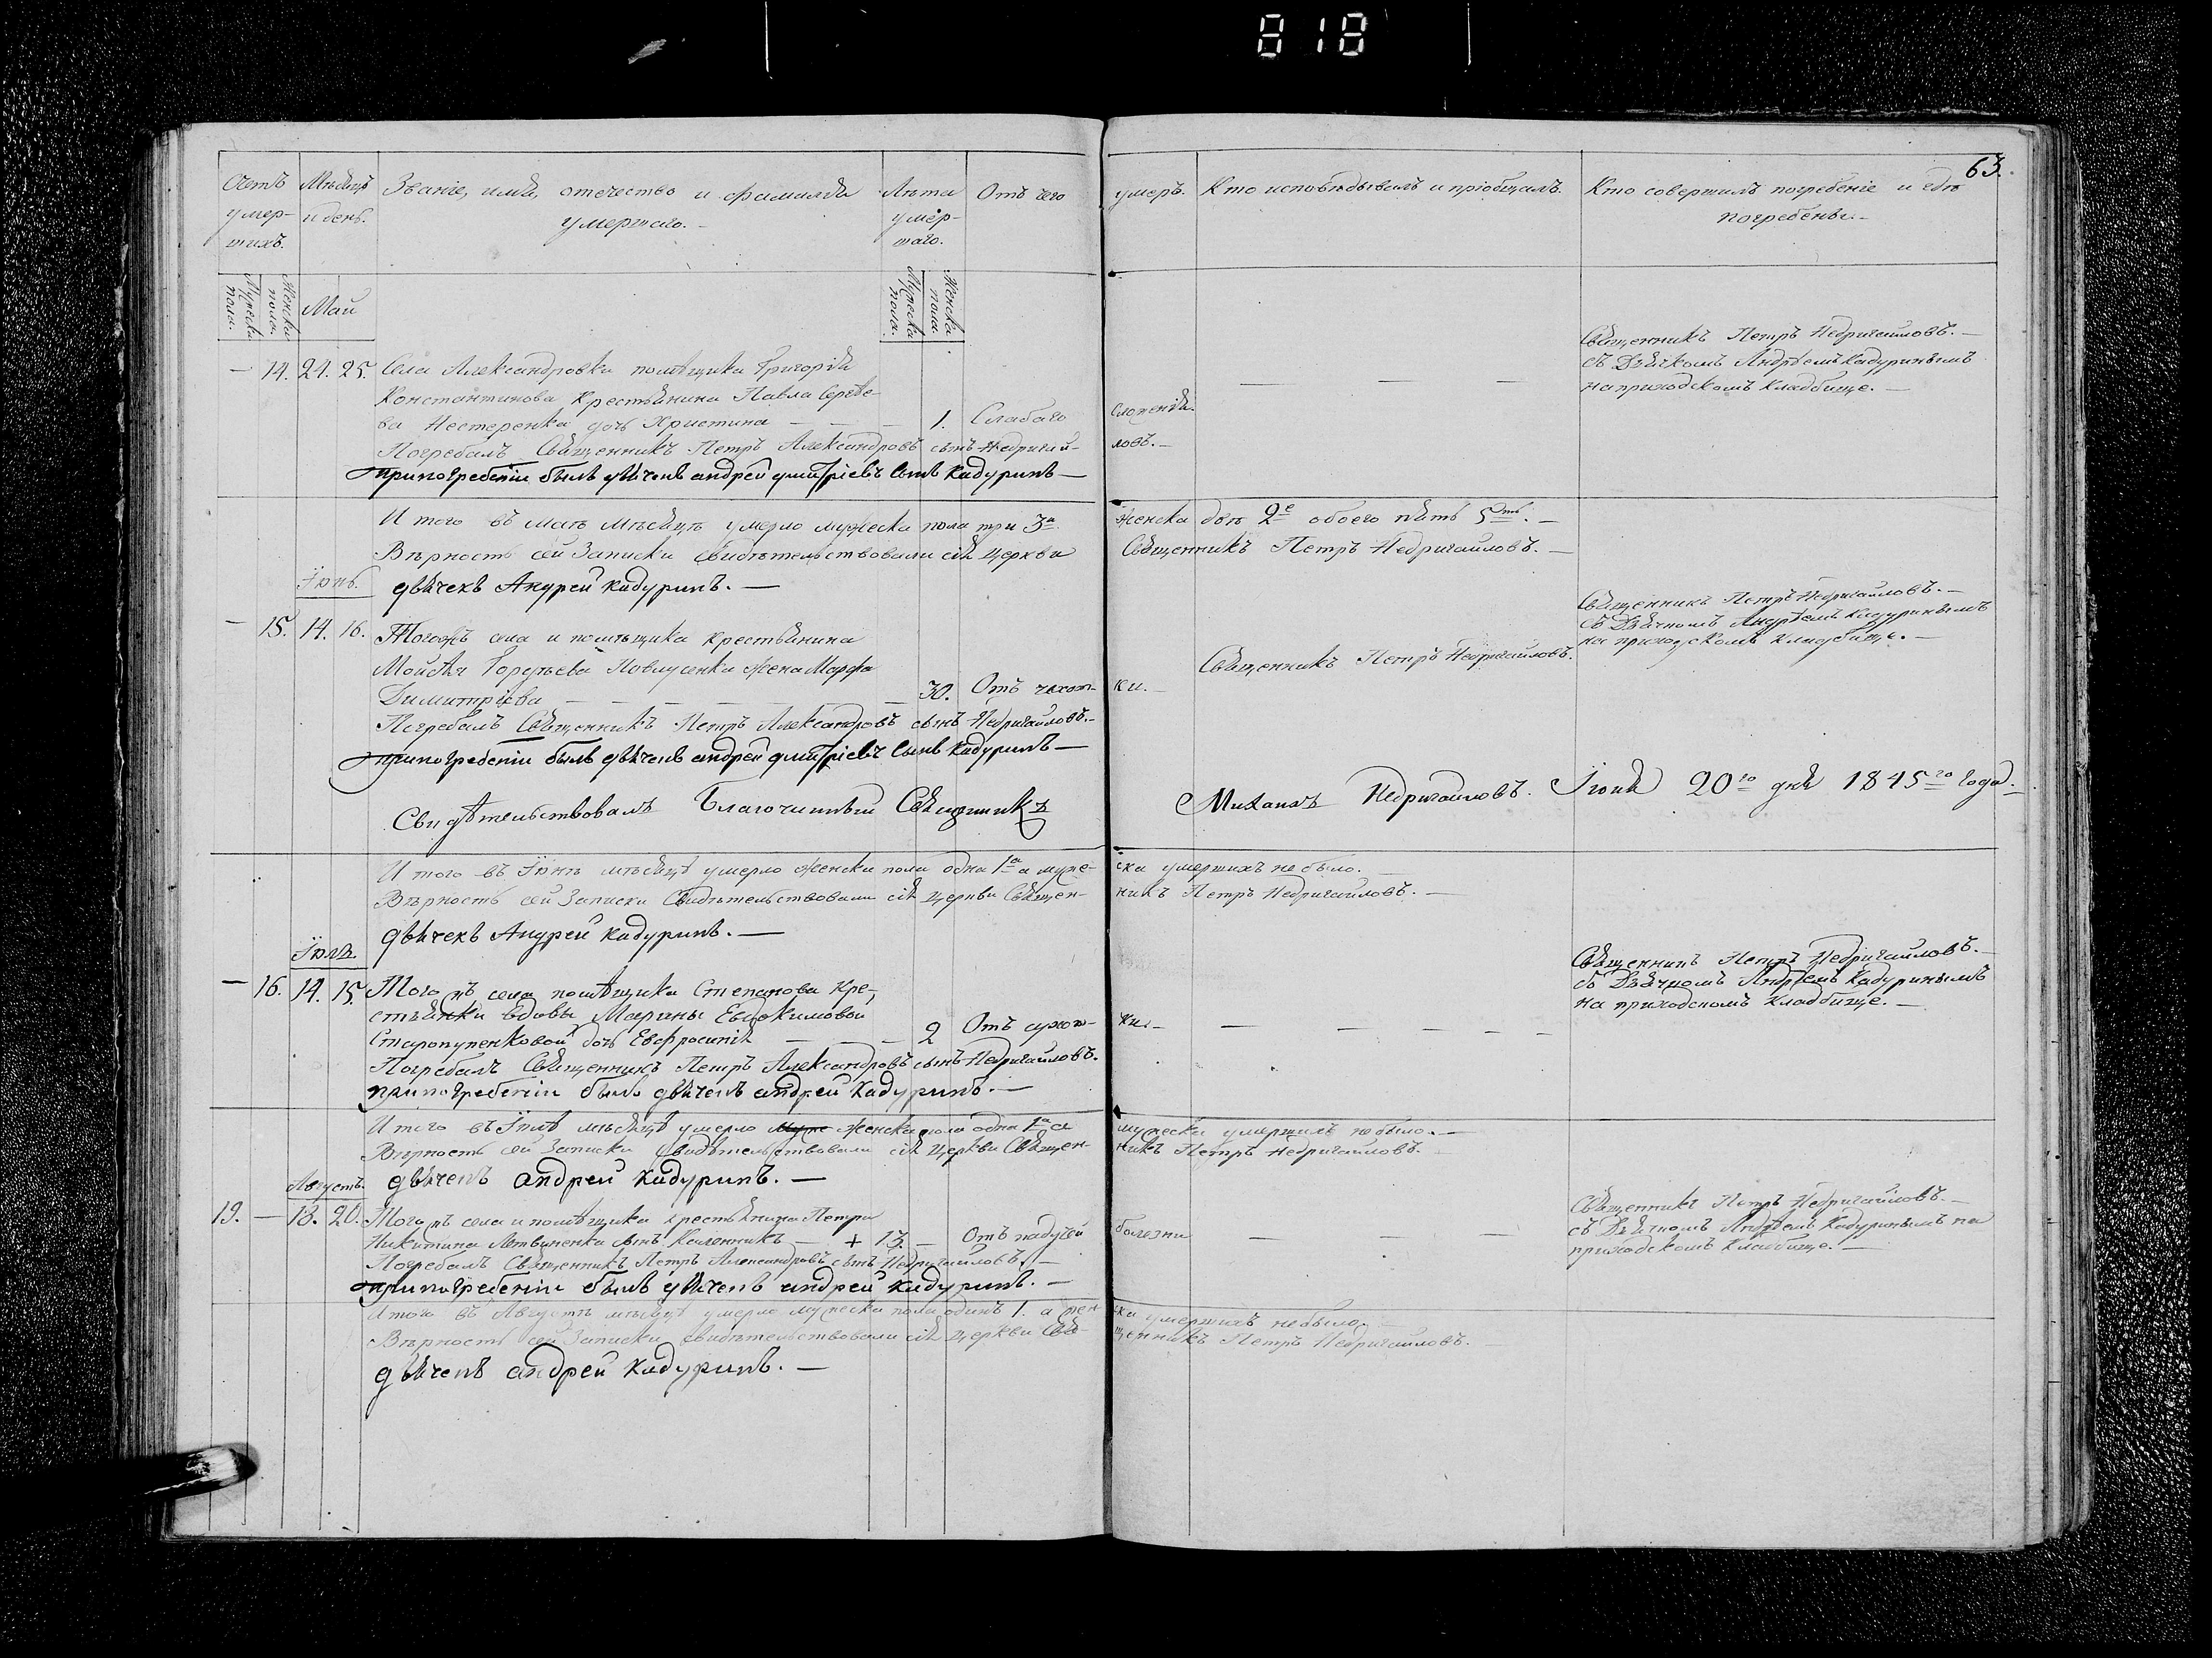 818
63.
Счетъ умер-шихъ.
Мѣсяцъ и день.
Званіе, имя, отечество и фамилія умершаго.
Лѣта умер-шаго.
Отъ чего
умеръ.
Кто исповѣдывалъ и пріобщалъ.
Кто совершилъ погребеніе и гдѣ погребены.
Мужеска пола.
Женска пола.
Май
Мужеска пола.
Женска пола.
— 14. 21. 25. Села Александровки помѣщика Григорія
Константинова крестьянина Павла Сергѣе-
ва Нестеренка дочь Христина — — — 1. Слабаго сложенія.
Погребалъ Священникъ Петръ Александровъ сынъ Недригай-ловъ.
при погребеніи былъ дьячекъ андрей дмитріевъ сынъ Кадуринъ —
— — —
Священникъ Петръ Недригайловъ. —
съ Дьячкомъ Андреемъ Кадуринымъ
на приходскомъ кладбище. —
Итого въ маѣ мѣсяцѣ умерло мужеска пола три 3а женска двѣ 2е обоего пять 5ть. —
Вѣрность сей Записки свидѣтельствовали сія церкви Священникъ Петръ Недригайловъ. —
дьячекъ Андрей кадуринъ. —
Іюнь.
— 15. 14. 16. Тогожъ села и помѣщика крестьянина
жена Марфа
Димитріева — — — — — — 30. Отъ чахот-ки. —
Погребалъ Священникъ Петръ Александровъ сынъ Недригайловъ. —
при погребеніи былъ дьячекъ андрей дмитріевъ сынъ Кадуринъ —
Священникъ Петръ Недригайловъ.
Священникъ Петръ Недригайловъ. —
съ Дьячкомъ Андреемъ Кадуринымъ
на приходскомъ кладбище. —
Свидѣтельствовалъ Благочинный Священникъ Михаилъ Недригайловъ. Іюня 20го дня 1845го года. —
Итого въ Іюнѣ мѣсяцѣ умерло женска пола одна 1а а муже-ска умершихъ небыло. —
Вѣрность сей Записки Свидѣтельствовали сія церкви Священ-никъ Петръ Недригайловъ. —
дьячекъ Андрей кадуринъ. —
Іюль.
— 16. 14. 15. Тогожъ села помѣщика Степанова кре-
стьянки вдовы Марины Евдокимовой
дочь Евфросинія — — — 2 Отъ
Погребалъ Священникъ Петръ Александровъ сынъ Недригайловъ.
при погребеніи былъ дьячекъ андрей Кадуринъ. —
— — — — —
Священникъ Петръ Недригайловъ. —
съ Дьячкомъ Андреемъ Кадуринымъ
на приходскомъ кладбище. —
Итого въ Іюлѣ мѣсяцѣ умерло муже женска пола одна 1а а мужеска умершихъ небыло. —
Вѣрность сей Записки Свидѣтельствовали сія церкви Священ-никъ Петръ Недригайловъ. —
дьячекъ андрей кадуринъ. —
Августъ.
19. — 18. 20. Тогожъ села и помѣщика крестьянина Петра
Никитина Литвиненка сынъ Каленникъ — + 13. — Отъ падучей болезни
Погребалъ Священникъ Петръ Александровъ сынъ Недригайловъ. —
при погребеніи былъ дьячекъ андрей кадуринъ. —
— — —
Священникъ Петръ Недригайловъ. —
съ Дьячкомъ Андреемъ Кадуринымъ на
приходскомъ кладбище. —
Итого въ Августѣ мѣсяцѣ умерло мужеска пола одинъ 1. а жен-ска умершихъ небыло. —
Вѣрность сей Записки свидѣтельствовали сія церкви Свя-щенникъ Петръ Недригайловъ. —
дьячекъ андрей кадуринъ. —